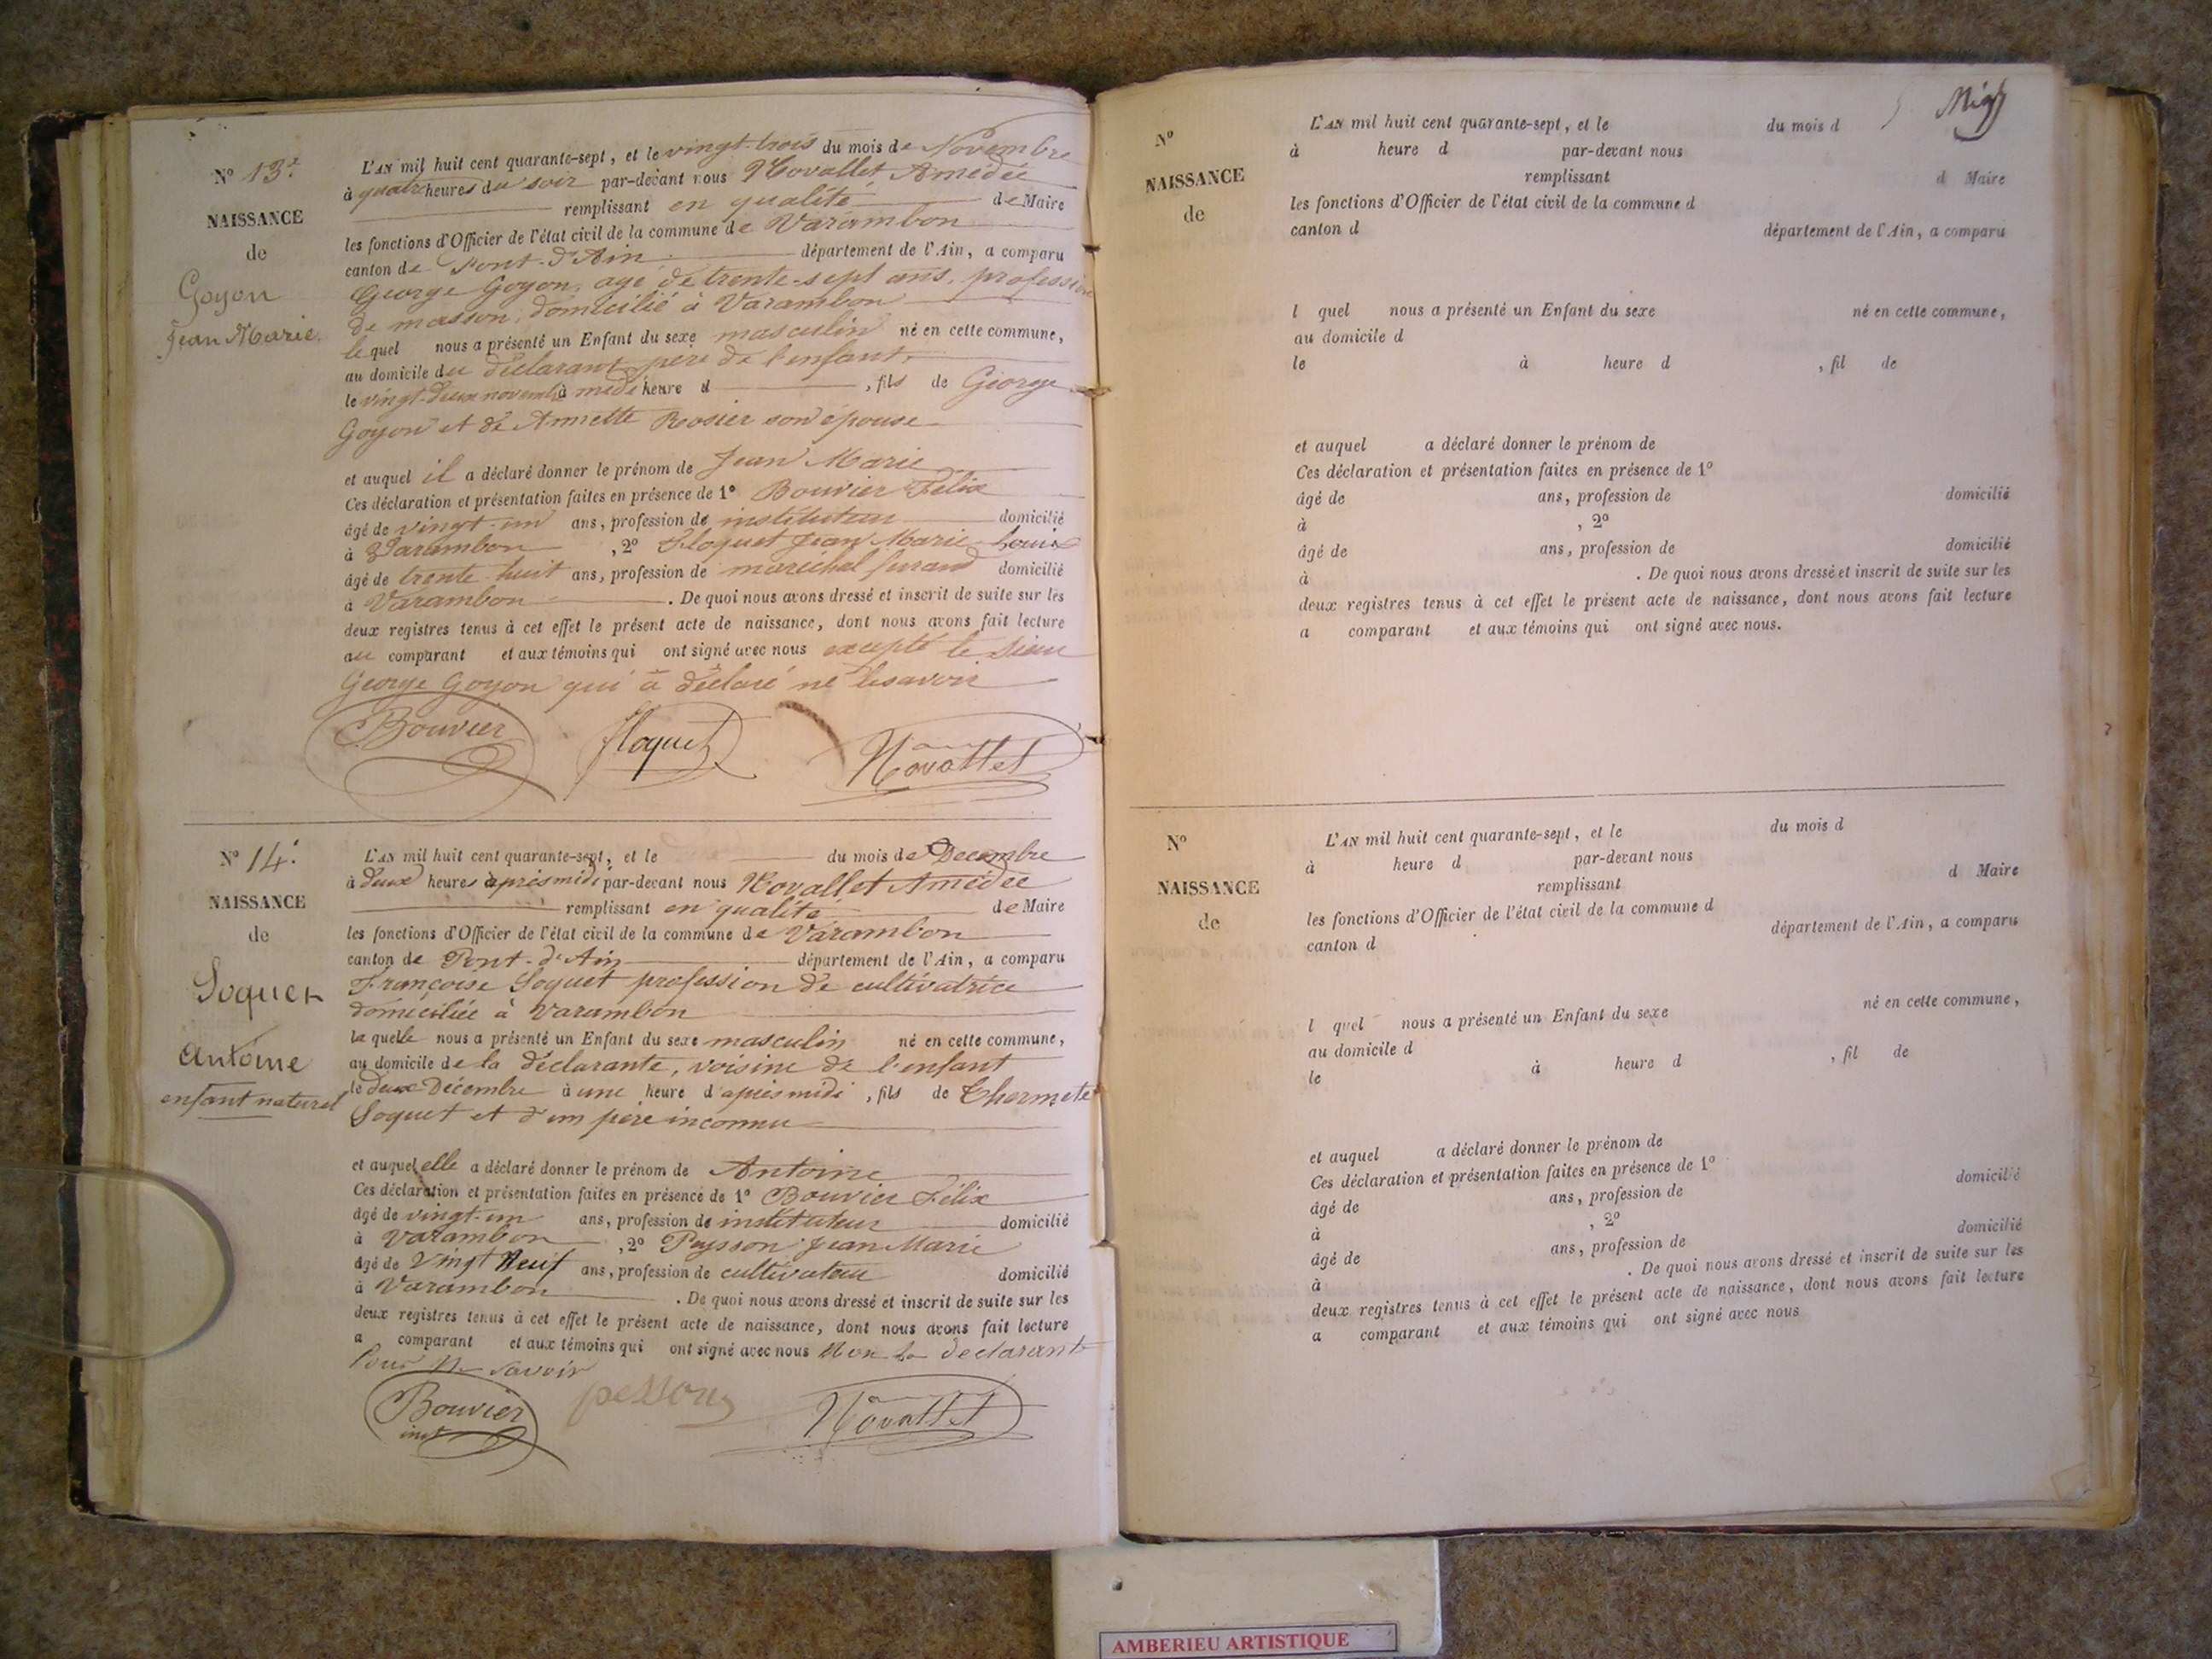 N° 13e
NAISSANCE
de
Goyon
Jean Marie.
L'AN mil huit cent quarante-sept, et le vingt-trois du mois de Novembre
à quatre heures du soir par-devant nous Novallet Amédée
remplissant en qualité de Maire
les fonctions d'Officier de l'état civil de la commune de Varambon
canton de Pont-d'Ain département de l'Ain, a comparu
George Goyon, agé de trente-sept ans, profession
de masson, domicilié à Varambon
lequel nous a présenté un Enfant du sexe masculin né en cette commune,
au domicile du déclarant, pere de l'enfant,
le vingt-deux novemb à midi heure d , fils de George
Goyon et de Annette Rosier son épouse
et auquel il a déclaré donner le prénom de Jean Marie
Ces déclaration et présentation faites en présence de 1° Bouvier Félix
âgé de vingt-un ans, profession de instituteur domicilié
à Varambon , 2° Floquet Jean Marie Louis
âgé de trente-huit ans, profession de maréchal ferand domicilié
à Varambon . De quoi nous avons dressé et inscrit de suite sur les
deux registres tenus à cet effet le présent acte de naissance, dont nous avons fait lecture
au comparant et aux témoins qui ont signé avec nous excepté le Sieur
George Goyon qui a déclaré ne le savoir
Bouvier floquet Novallet
N° 14e
NAISSANCE
de
Soquet
Antoine
enfant naturel
L'AN mil huit cent quarante-sept, et le du mois de Decembre
à deux heures après midi par-devant nous Novallet Amédée
remplissant en qualité de Maire
les fonctions d'Officier de l'état civil de la commune de Varambon
canton de Pont-d'Ain département de l'Ain, a comparu
Françoise Soquet profession de cultivatrice
domiciliée à Varambon
laquelle nous a présenté un Enfant du sexe masculin né en cette commune,
au domicile de la déclarante, voisine de l'enfant
le deux Décembre à une heure d'après midi, fils de
Soquet et d'un père inconnu
et auquel elle a déclaré donner le prénom de Antoine
Ces déclaration et présentation faites en présence de 1° Bouvier Félix
âgé de vingt-un ans, profession de instituteur domicilié
à Varambon , 2° Peysson Jean Marie
âgé de Vingt Neuf ans, profession de cultivateur domicilié
à Varambon . De quoi nous avons dressé et inscrit de suite sur les
deux registres tenus à cet effet le présent acte de naissance, dont nous avons fait lecture
a comparant et aux témoins qui ont signé avec nous Non la declarante
Pour Ne Savoir
Bouvier pesson Novallet
inst
N°
NAISSANCE
de
L'AN mil huit cent quarante-sept, et le du mois d
à heure d par-devant nous
remplissant d Maire
les fonctions d'Officier de l'état civil de la commune d
canton d département de l'Ain, a comparu
l quel nous a présenté un Enfant du sexe né en cette commune,
au domicile d
le à heure d , fil de
et auquel a déclaré donner le prénom de
Ces déclaration et présentation faites en présence de 1°
âgé de ans, profession de domicilié
à , 2°
âgé de ans, profession de domicilié
à . De quoi nous avons dressé et inscrit de suite sur les
deux registres tenus à cet effet le présent acte de naissance, dont nous avons fait lecture
a comparant et aux témoins qui ont signé avec nous.
N°
NAISSANCE
de
L'AN mil huit cent quarante-sept, et le du mois d
à heure d par-devant nous
remplissant d Maire
les fonctions d'Officier de l'état civil de la commune d
canton d département de l'Ain, a comparu
l quel nous a présenté un Enfant du sexe né en cette commune,
au domicile d
le à heure d , fil de
et auquel a déclaré donner le prénom de
Ces déclaration et présentation faites en présence de 1°
âgé de ans, profession de domicilié
à , 2°
âgé de ans, profession de domicilié
à . De quoi nous avons dressé et inscrit de suite sur les
deux registres tenus à cet effet le présent acte de naissance, dont nous avons fait lecture
a comparant et aux témoins qui ont signé avec nous
AMBERIEU ARTISTIQUE